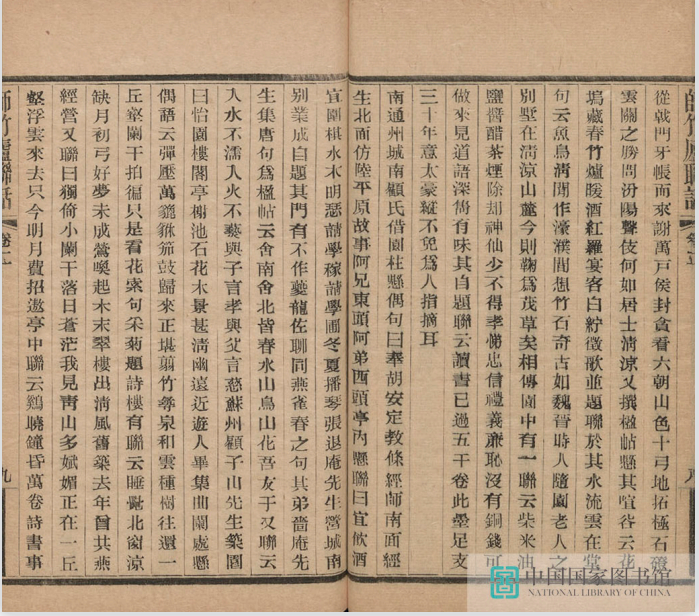 從戟門牙帳而來謝萬戶侯封貪看六朝山色十弓地拓極石磴
雲關之勝問汾陽聲伎何如居士清涼又撰楹帖懸其暄谷云花
塢藏春竹爐暖酒紅羅宴客白紵徵歌並題聯於其水流雲在堂
句云魚鳥淸閒作濠濮間想竹石奇古如魏晉時人隨園老人之
別墅在淸涼山麓今則鞠爲茂草矣相傳園中有一聯云柴米油
鹽醬醋茶煙除却神仙少不得孝悌忠信禮義廉恥沒有銅錢可
做來見道語深雋有味其自題聯云讀書已過五千卷此墨足支
三十年意太豪縱不免爲人指摘耳
南通州城南顧氏借園柱懸偶句曰奉胡安定敎條經師南面經
生北面仿陸平原故事阿兄東頭阿弟西頭亭內懸聯曰宜飮酒
宜圍棋水木明瑟請學稼請學圃冬夏播琴張退庵先生營城南
別業成自題其門有不作夔龍佐聊同燕雀春之句其弟嗇庵先
生集唐句爲楹帖云舍南舍北皆春水山鳥山花吾友于又聯云
入水不濡入火不爇與子言孝與父言慈蘇州顧子山先生築園
曰怡園樓閣亭榭池石花木景甚淸幽遠近遊人畢集曲闌處懸
偶語云彈壓萬
笳鼓歸來正堪
竹尋泉和雲種樹往還一
丘壑闌干拍徧只是看花索句采菊題詩樓有聯云睡覺北窗涼
缺月初弓好夢未成鶯喚起木末翠樓出淸風舊築去年曾共燕
經營又聯曰獨倚小闌干落日蒼茫我見靑山多嫵媚正在一丘
壑浮雲來去只今明月費招邀亭中聯云鷄曉鐘昏萬卷詩書事
師竹廬聯話
卷十二
九
中国国家图书馆
NATIONAL LIBRARY OF CHINA